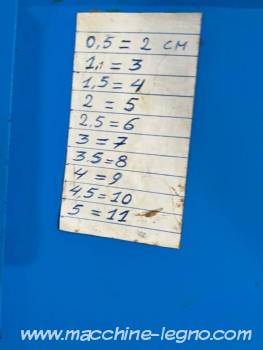 0,5 = 2 см
1,1 = 3
1,5 = 4
2 = 5
2,5 = 6
3 = 7
3.5 = 8
4 = 9
4,5 = 10
5 = 11
www.macchine-legno.com